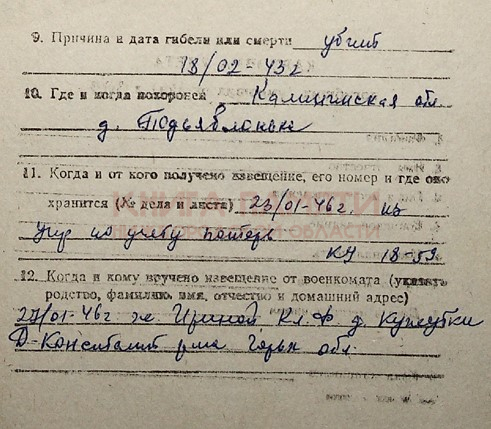 9. Причина и дата гибели или смерти убит
18/02-43г
10. Где и когда похоронен Калининская обл
д. Подъяблонье
11. Когда и от кого получено извещение, его номер и где оно
хранится (№ дела и листа) 23/01-46г. из
Упр по учету потерь
КУ 18-59
КНИГА ПАМЯТИ
НИЖЕГОРОДСКОЙ ОБЛАСТИ
12. Когда и кому вручено извещение от военкомата (указать
родство, фамилию, имя, отчество и домашний адрес)
27/01-46г ж. Кл. Ф д.
Д-Константин р-на Горьк обл.